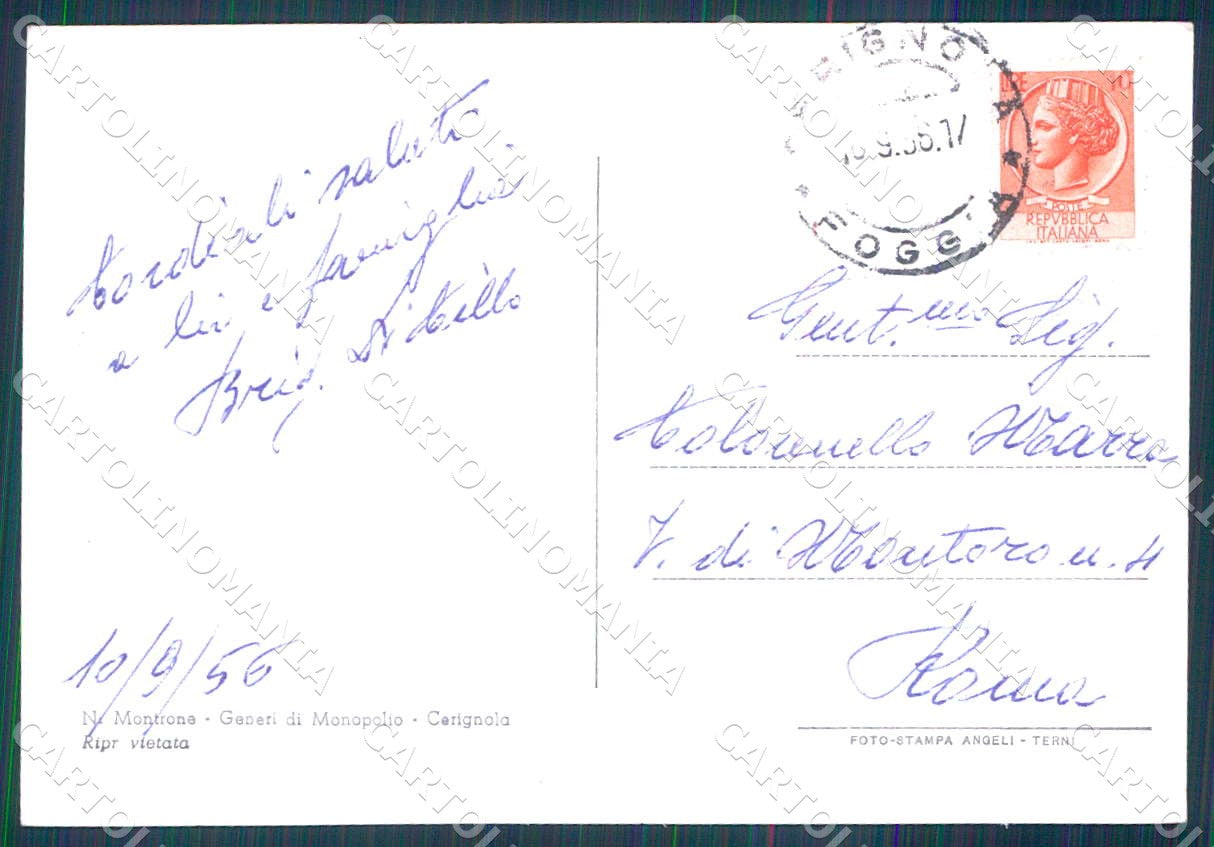 Cordiali saluti
a lei e famiglia
Brig. Di Lillo
10/9/56
N. Montrone - Generi di Monopolio - Cerignola
Ripr vietata
RIGNO A
9.56.17
FOGGIA
LIRE 10
POSTE
REPVBBLICA
ITALIANA
Gent.mo Sig.
Colonnello Marra
V. di Montoro n. 4
Roma
FOTO-STAMPA ANGELI - TERNI
CARTOLINOMANIA